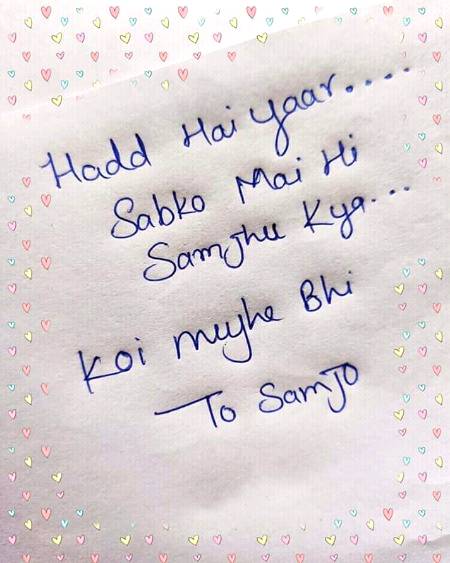 Hadd Hai Yaar....
Sabko Mai Hi
Samjhu Kya...
Koi mujhe Bhi
To SamJO